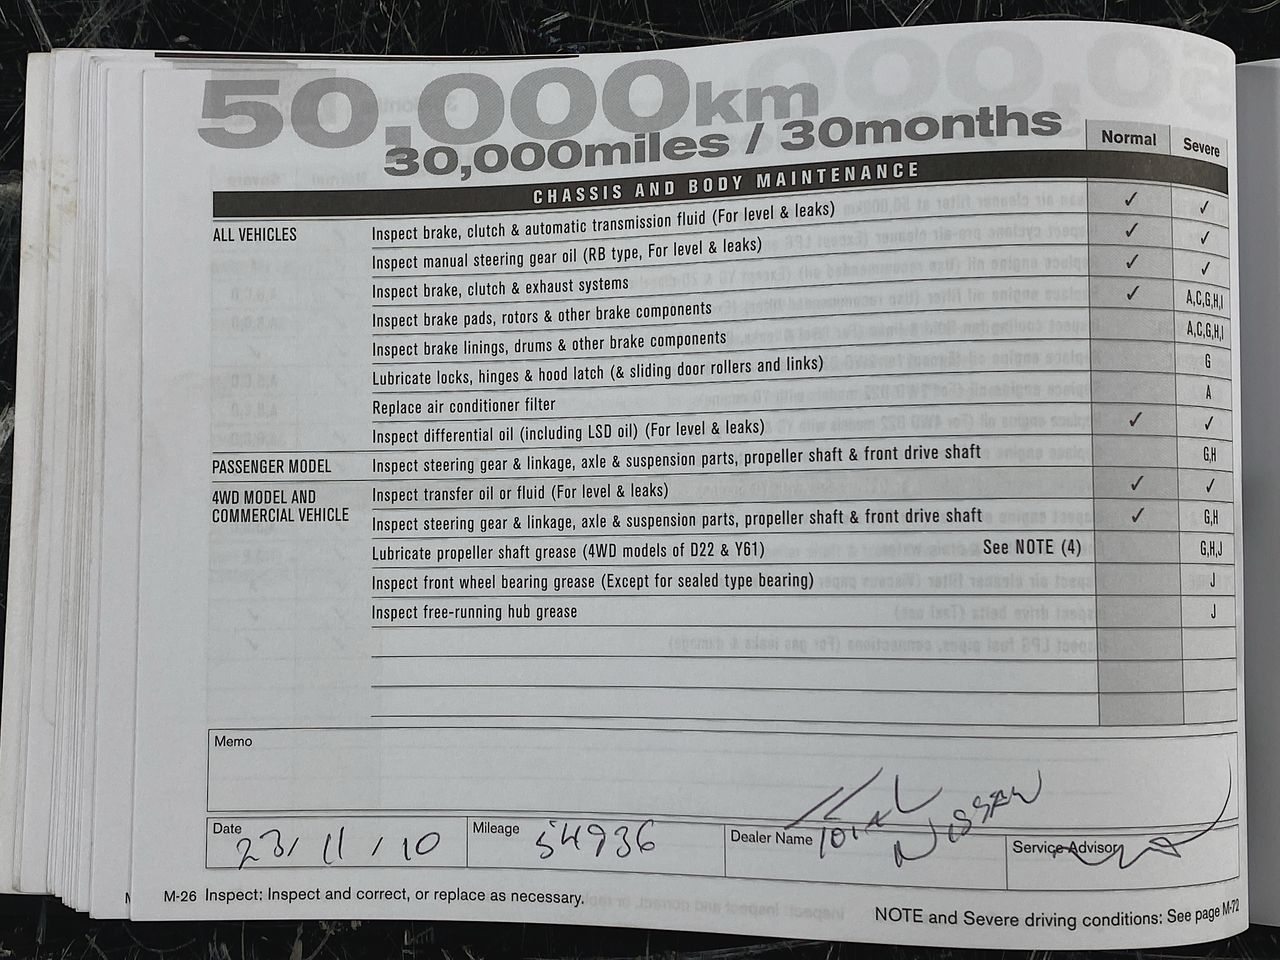 50,000km
30,000miles / 30months
Normal Severe
CHASSIS AND BODY MAINTENANCE
ALL VEHICLES Inspect brake, clutch & automatic transmission fluid (For level & leaks) ✓ ✓
Inspect manual steering gear oil (RB type, For level & leaks) ✓ ✓
Inspect brake, clutch & exhaust systems ✓ ✓
Inspect brake pads, rotors & other brake components ✓ A,C,G,H,I
Inspect brake linings, drums & other brake components A,C,G,H,I
Lubricate locks, hinges & hood latch (& sliding door rollers and links) G
Replace air conditioner filter A
Inspect differential oil (including LSD oil) (For level & leaks) ✓ ✓
PASSENGER MODEL Inspect steering gear & linkage, axle & suspension parts, propeller shaft & front drive shaft G,H
4WD MODEL AND COMMERCIAL VEHICLE Inspect transfer oil or fluid (For level & leaks) ✓ ✓
Inspect steering gear & linkage, axle & suspension parts, propeller shaft & front drive shaft ✓ G,H
Lubricate propeller shaft grease (4WD models of D22 & Y61) See NOTE (4) G,H,J
Inspect front wheel bearing grease (Except for sealed type bearing) J
Inspect free-running hub grease J
Memo
Date 23/11/10 Mileage 54936 Dealer Name Nissan Service Advisor
M-26 Inspect: Inspect and correct, or replace as necessary.
NOTE and Severe driving conditions: See page M-72